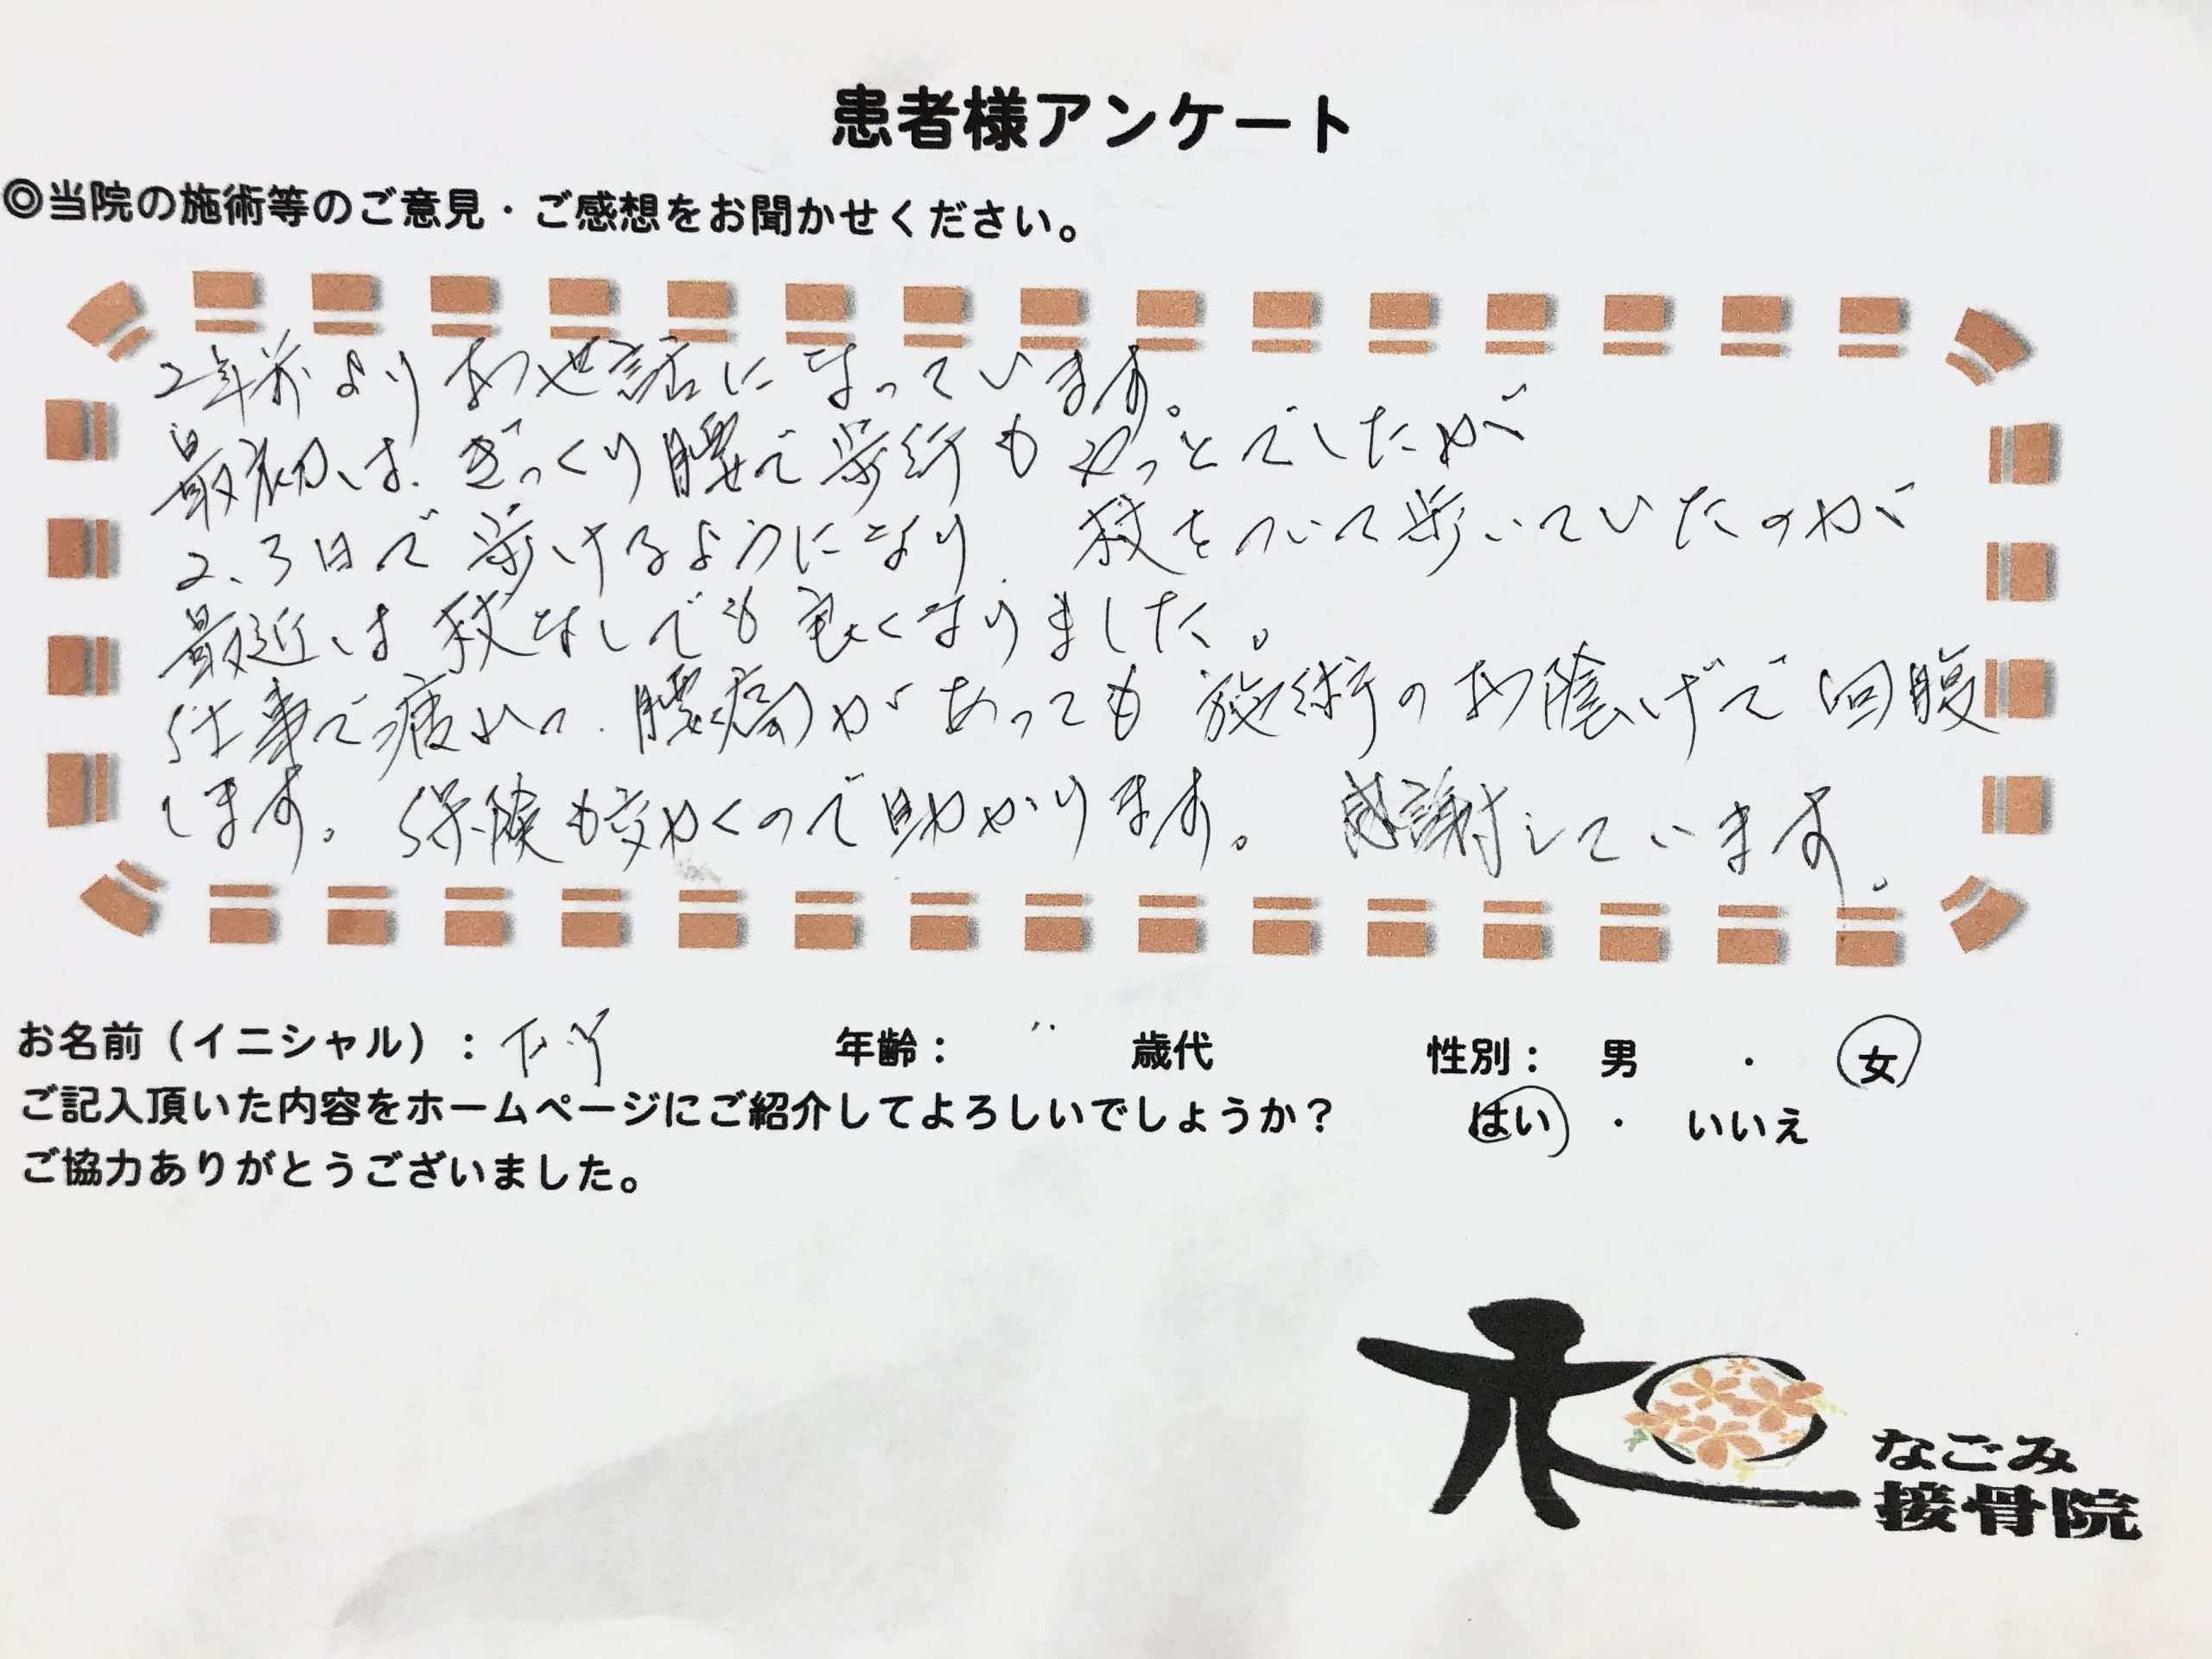 患者様アンケート
◎当院の施術等のご意見・ご感想をお聞かせください。
2年前よりお世話になっています。
最初は、ぎっくり腰で歩行もやっとでしたが
2、3日で歩けるようになり、杖をついて歩いていたのが
最近は杖なしでも良くなりました。
仕事で疲れて、腰痛があっても施術のお陰げで回腹
します。保険も効くので助かります。感謝しています。
お名前（イニシャル）： 年齢： 歳代 性別： 男 ・ 女
ご記入頂いた内容をホームページにご紹介してよろしいでしょうか？ はい ・ いいえ
ご協力ありがとうございました。
なごみ
接骨院